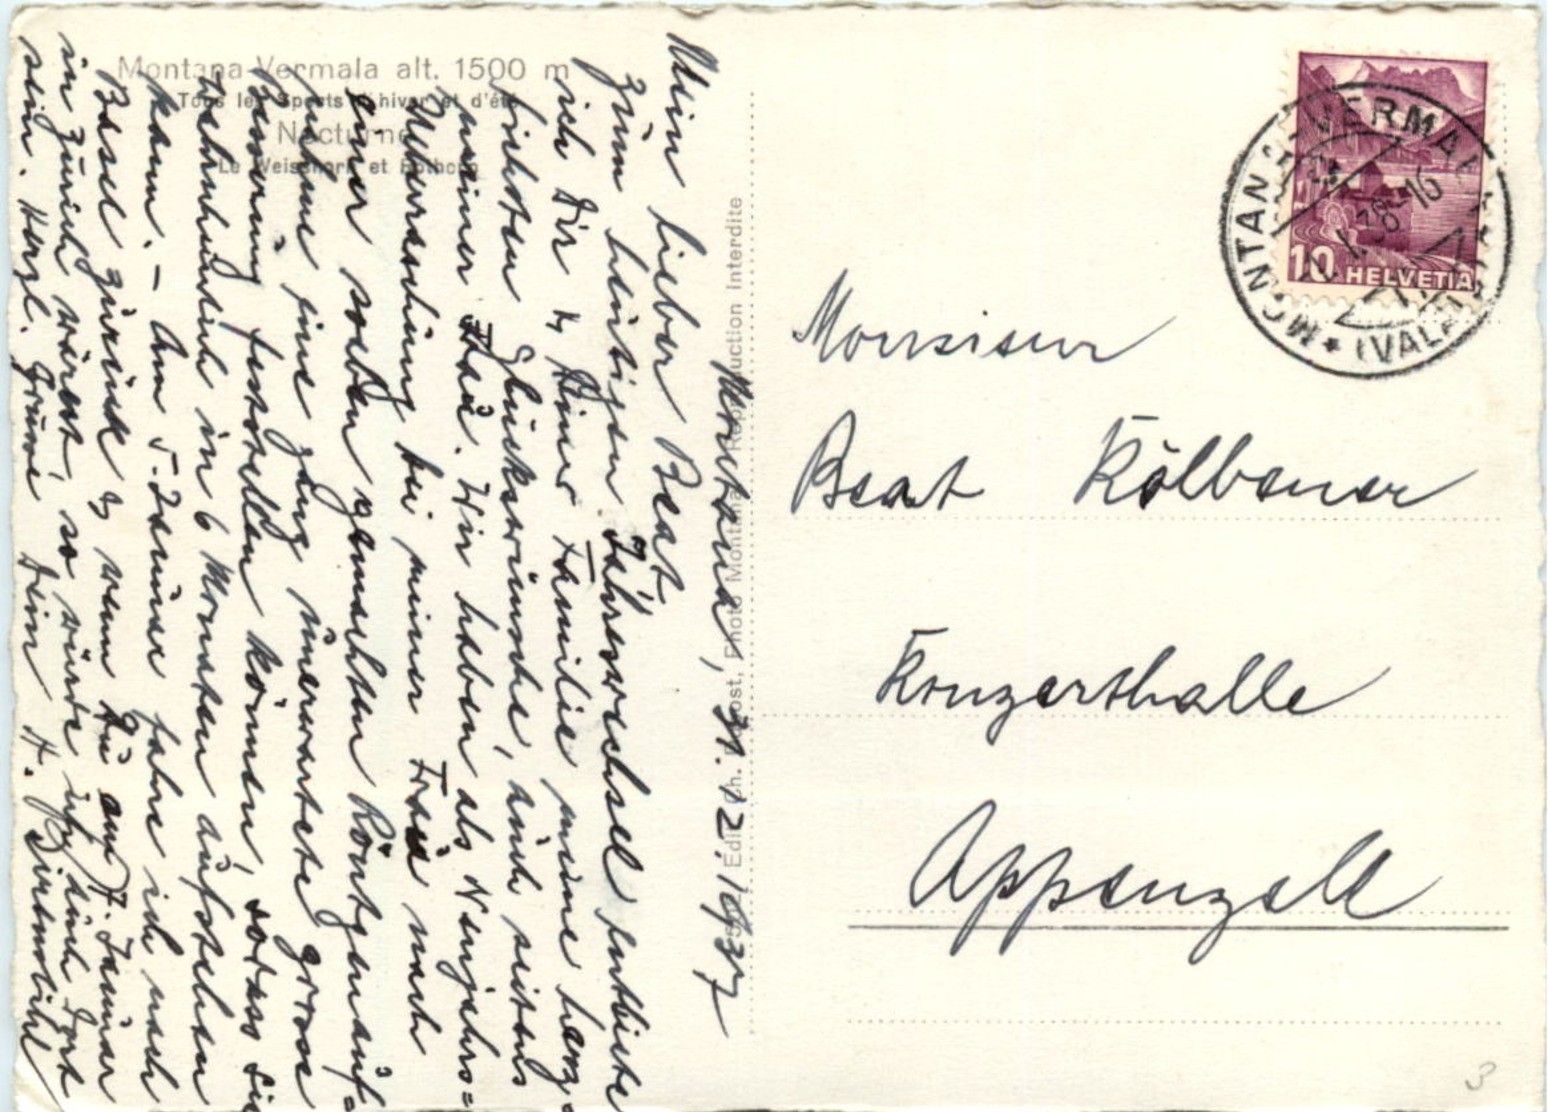 Montana-Vermala alt. 1500 m
Tous les Sports d'hiver et d'été
Nocturne
Le Weisshorn et Rothorn
Montana, 31.12.1937
Mein lieber Beat
Zum heutigen Jahreswechsel entbiete
ich Dir & Deiner Familie meine herz=
lichsten Glückwünsche, auch seitens
meiner Frau. Wir haben als Neujahrs=
Überraschung bei meiner Frau nach
einer soeben gemachten Röntgenauf=
nahme eine ganz unerwartete grosse
Besserung feststellen können, sodass sie
wahrscheinlich in 6 Monaten aufstehen
kann. – Am 5. Januar fahre ich nach
Basel zurück & wenn Du am 7. Januar
in Zürich wärest, so würde ich auch dort
sein. Herzl. Grüsse Dein
Edit. Ch. Photo Montana. Reproduction Interdite
MONTANA-VERMALA
(VALAIS)
10 HELVETIA
Monsieur
Beat Kölbener
Konzerthalle
Appenzell
3